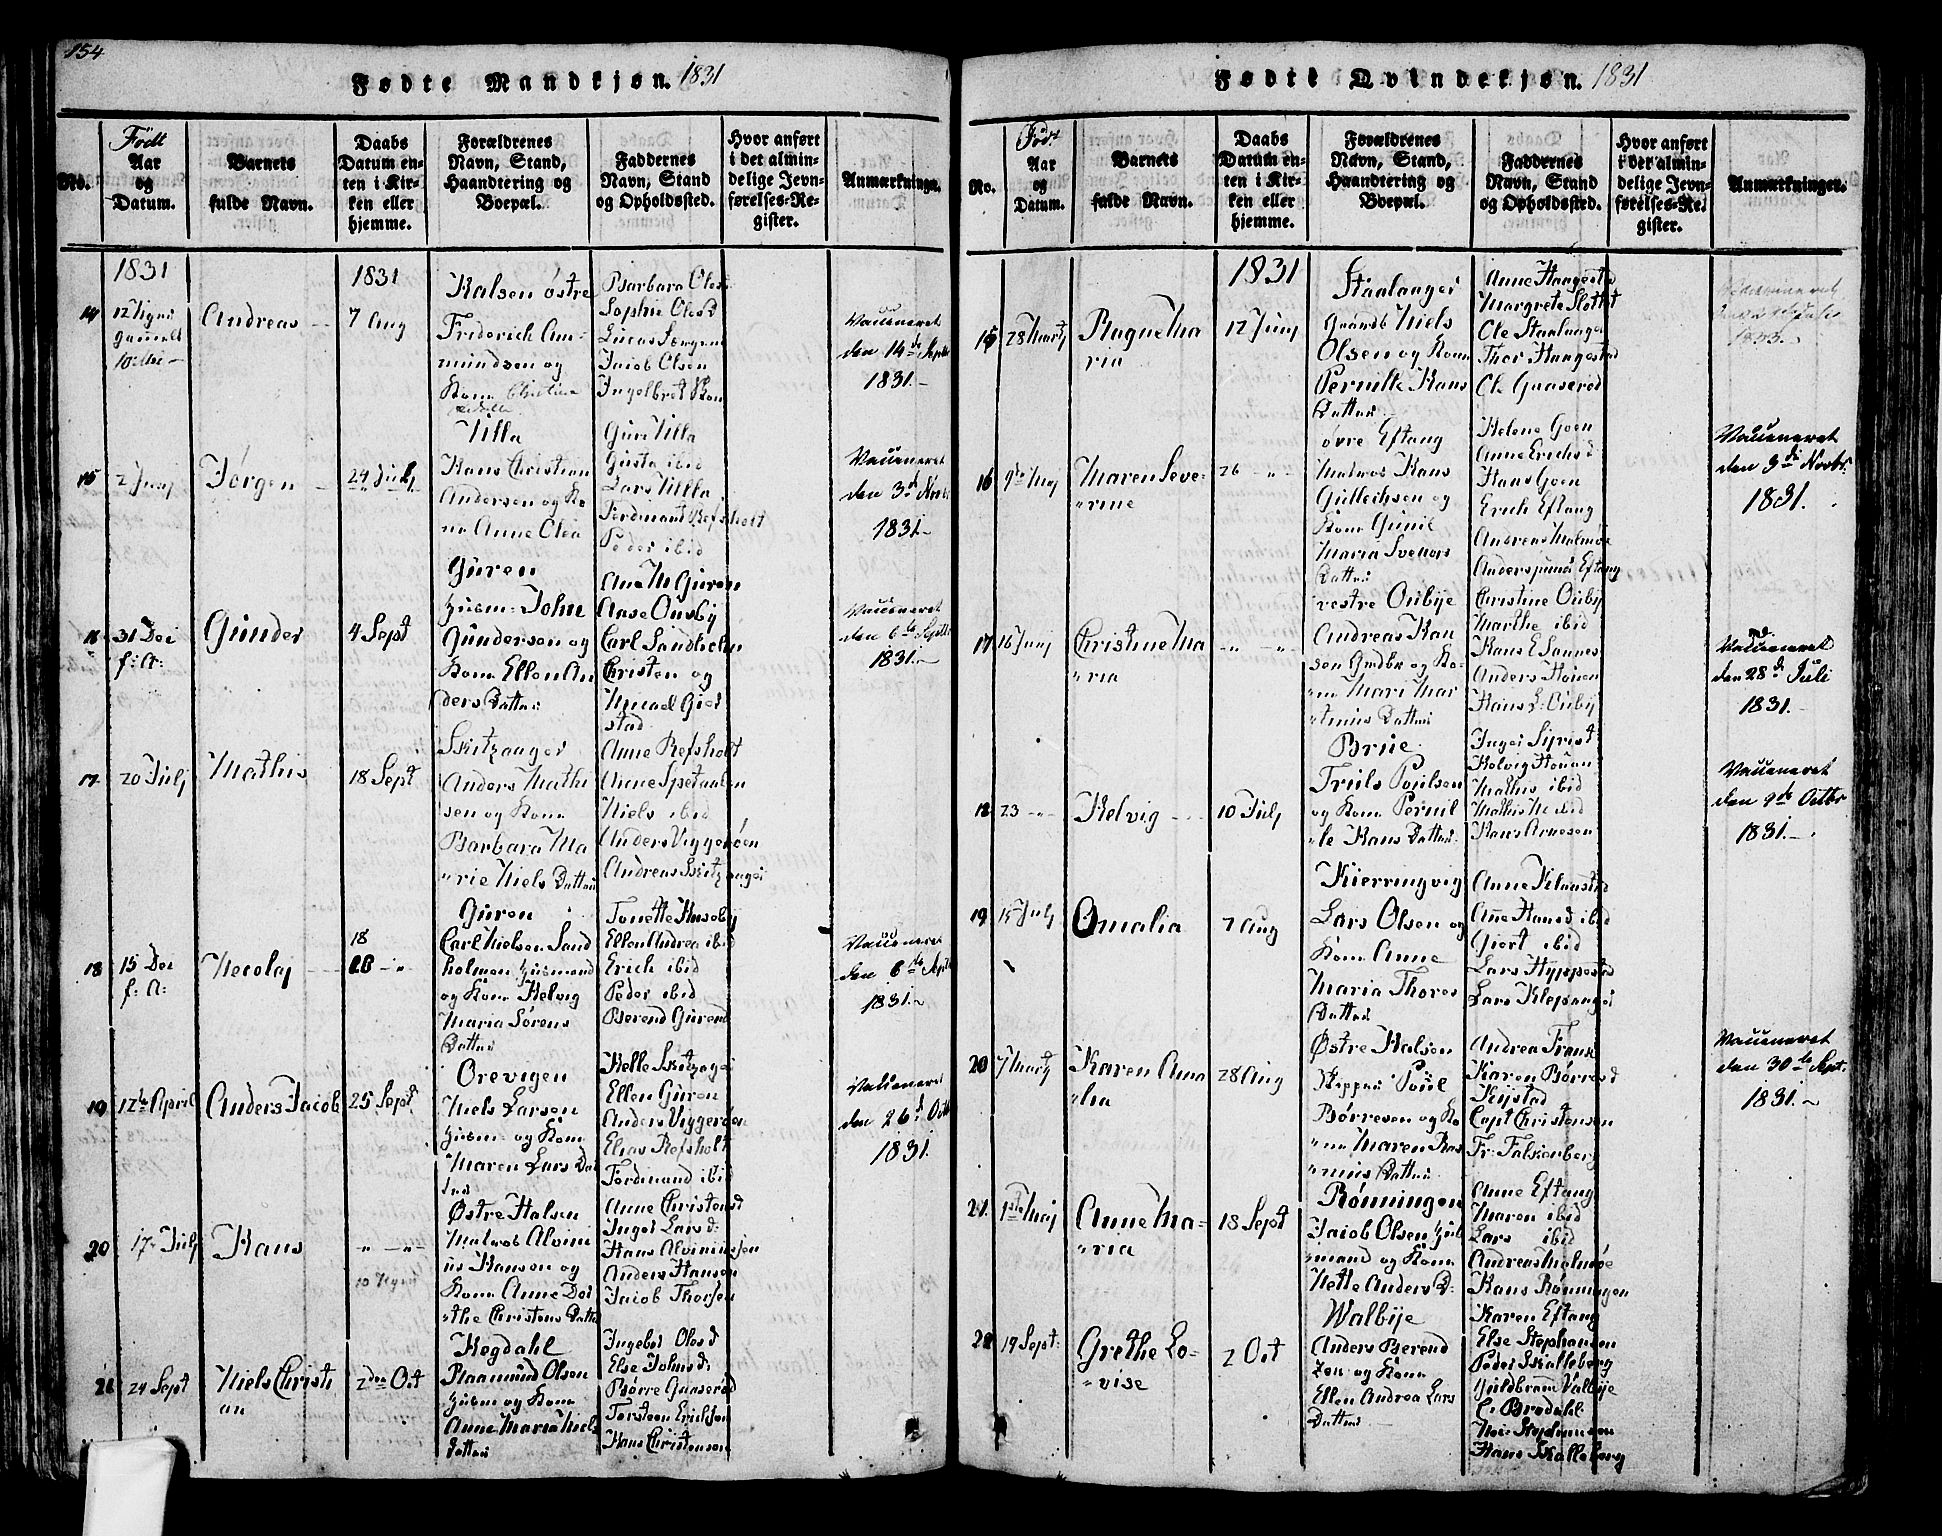 154
Fødte Mandkjøn. 1831
No.
Født
Aar
og
Datum.
Barnets
fulde Navn.
Daabs
Datum en-
ten i Kir-
ken eller
hjemme.
Forældrenes
Navn, Stand,
Haandtering og
Boepæl.
Faddernes
Navn, Stand
og Opholdssted.
Hvor anført
i det almin-
delige Jevn-
førelses-Re-
gister.
Anmærkninger.
1831
14
Andreas
1831
7 Aug
Kalsen østre
Friderich Am-
mundsen og
Kone Christine
Barbara Olesd
Sophie Olesd
Lucas Jørgens
Jacob Olsen
Ingelbret
Vaccineret
den 14de Septbr
1831.
15
2 Junj
Jørgen
24 Julj
Villa
Hans Christian
Andersen og Ko
ne Anne Olea
Guri Villa
Gusta ibid
Lars Villa
Ferdinand Refsholt
Peder ibid
Vaccineret
den 3de Novbr
1831.
16
31 Dec
f: A:
Gunder
4 Sept
Guren
Huusm: John
Gundersen og
Kone Ellen An
ders Datter
Ane M Guren
Aase Ousby
Carl Sandholm
Christen og
Michael Gier
stad
Vaccineret
den 6te Septbr
1831.
17
20 Julj
Mathis
18 Sept
Skitzanger
Anders Mathi
sen og Kone
Barbara Ma
"rie Niels Datter
Anne Refsholt
Anne Spetaalen
Niels ibid
Anders Viggerøen
Andreas Skitzanger
18
15 Dec
f: A:
Necolaj
18
Guren
Carl Nielsen Sand
holmen Huusmand
og Kone Helvig
Maria Sørens
Datter
Tonette Huseby
Ellen Andrea ibid
Erich ibid
Peder ibid
Berend Guren
Vaccineret
den 6te Septbr
1831.
19
12te April
Anders Jacob
25 Sept
Orevigen
Niels Larsen
Huusm: og Kone
Maren Lars Dat
ter
Helle Skitzager
Ellen Guren
Anders Viggerøen
Elias Refsholt
Ferdinand ibid
Vaccineret
den 26de Octbr
1831.
20
17 Julj
Hans
" — " —
Østre Halsen
Matros Alvini
us Hansen og
Kone Anne Dor
"the Christens Datter
Anne Christensd
Inger Larsd:
Hans Alviniussen
Anders Hansen
Jacob Thorsen
21
24 Sept
Niels Christi
an
2den Oct
Hegdahl
Raamund Olsen
Huusm og Kone
Anne Maria Niels
Datter
Ingebor Olesd
Else Johnsd:
Børre Gaaserød
Torsteen Erichsen
Hans Christensen
Fødte Qvindekjøn. 1831
No.
Født
Aar
og
Datum.
Barnets
fulde Navn.
Daabs
Datum en-
ten i Kir-
ken eller
hjemme.
Forældrenes
Navn, Stand,
Haandtering og
Boepæl.
Faddernes
Navn, Stand
og Opholdssted.
Hvor anført
i det almin-
delige Jevn-
førelses-Re-
gister.
Anmærkninger.
15
28 Marts
Ragne Ma
ria
1831
12 Junj
Staalanger
Gaardb Niels
Olsen og Kone
Pernille Hans
Datter
Anne Haagestad
Margrete Slottet
Ole Staalanger
Thor Haagestad
Ole Gaaserød
1833.
16
9de Maj
Maren Seve-
"rine
26 "
øvre Eftang
Matros Hans
Gulleichsen og
Kone Gunil
Maria Svenors
Datter
Helene Goen
Anne Erichsd
Hans Goen
Erich Eftang
Andreas Malmøe
Vaccineret
den 3de Novbr.
1831.
17
16 Junj
Christine Ma
"ria
" — "
vestre Oubye
Andreas Han
sen Gmdbr og Ko-
"ne Mari Mar
"tinius Datter
Christine Ouby
Marthe ibid
Hans E Sannes
Anders Houen
Hans L: Ouby
Vaccineret
den 28de Juli
1831.
18
23 — "
Helvig
10 Julj
Brue
Truls Poulsen
og Kone Pernil
"le Hans Datter
Inger Syrist
Helvig Houen
Mathis ibid
Mathis N ibid
Hans Arnesen
Vaccineret
den 9de Octbr
1831.
19
15 Julj
Omalia
7 Aug
Kierringvig
Lars Olsen og
Kone Anne
Maria Thores
Datter
Anne Klaastad
Anne Hansd ibid
Giert ibid
Lars Hyppestad
Lars Klepanger
20
7 Marts
Karen Ama
"lia
28 Aug
Østre Halsen
Skipper Poul
Børresen og Ko
"ne Maren Ras
"mus Datter
Andrea Frans
Karen Børresd
Kystad
Capt Christensen
Fr: Falkenberg
Vaccineret
den 30te Sept.
1831.
21.
1ste Maj
Anne Ma-
"ria
18 Sept
Rønningen
Jacob Olsen Huus
"mand og Kone
Nette Anders D:
Anne Eftang
Maren ibid
Lars ibid
Andreas Malmøe
Hans Rønningen
22
19 Sept:
Grethe Lo-
"vise
2 Oct
Walbye
Anders Berend
zen og Kone
Ellen Andrea Lars
Datter
Karen Eftang
Else Stephansen
Peder Skalleberg
Guldbrand Valbye
C: Bredahl
Hans Skalleberg